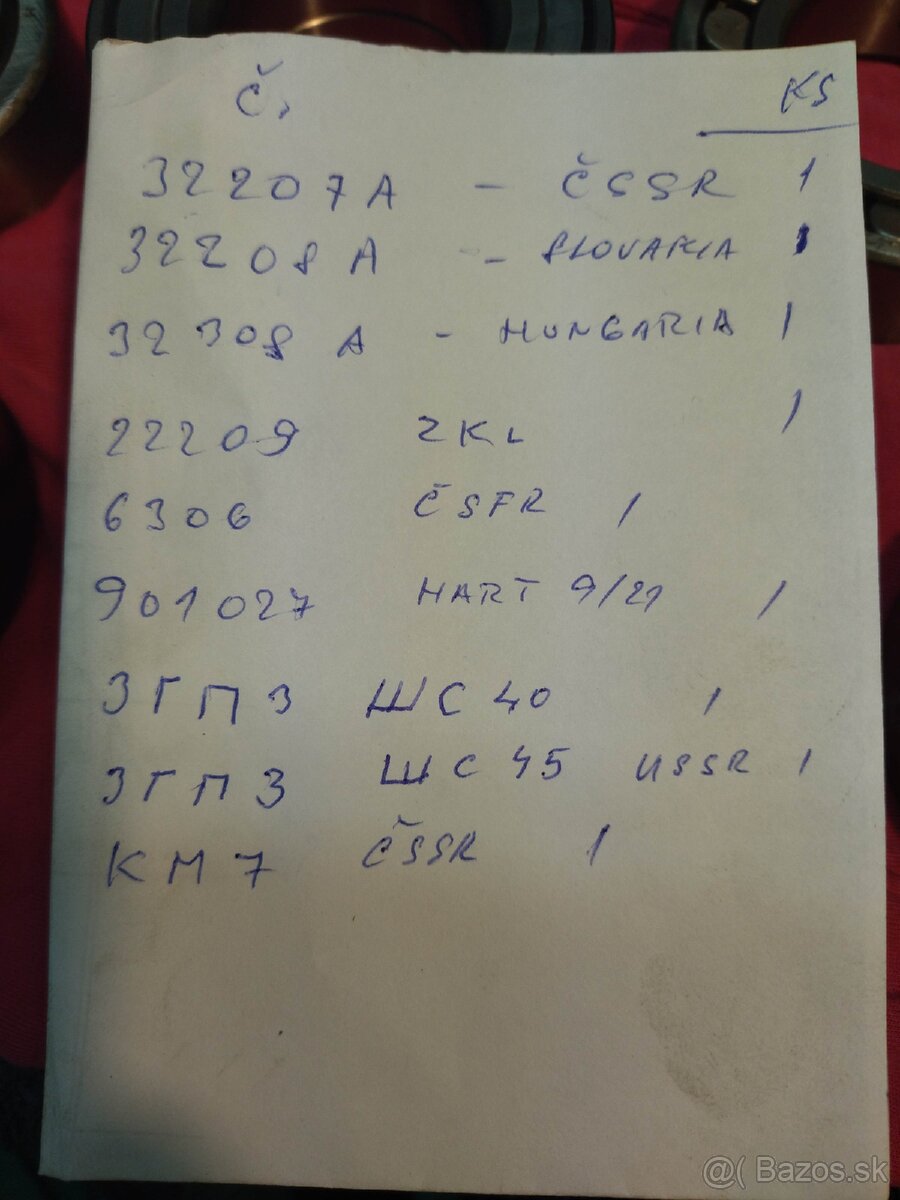 Č. KS
32207A - ČSSR 1
32208A - SLOVAKIA 1
32308A - HUNGARIA 1
22209 ZKL 1
6306 ČSFR 1
901027 HART 9/21 1
ЗГПЗ ШС 40 1
ЗГПЗ ШС 45 USSR 1
KM7 ČSSR 1
@( Bazos.sk